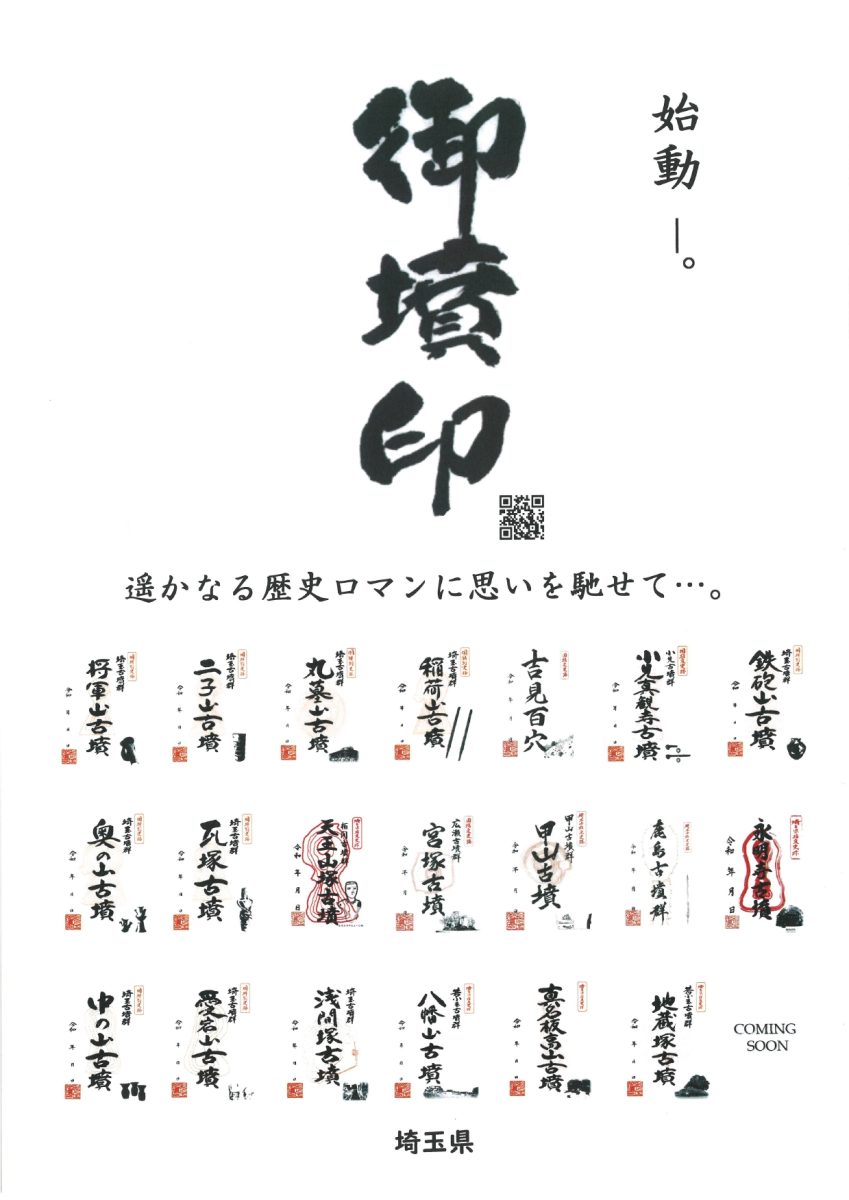 始動―。
御墳印
遥かなる歴史ロマンに思いを馳せて…。
埼玉古墳群
将軍山古墳
令和 年 月 日
埼玉古墳群
二子山古墳
令和 年 月 日
埼玉古墳群
丸墓山古墳
令和 年 月 日
埼玉古墳群
稲荷山古墳
令和 年 月 日
吉見百穴
令和 年 月 日
小見古墳群
小見真観寺古墳
令和 年 月 日
埼玉古墳群
鉄砲山古墳
令和 年 月 日
埼玉古墳群
奥の山古墳
令和 年 月 日
埼玉古墳群
瓦塚古墳
令和 年 月 日
柏間古墳群
天王山塚古墳
令和 年 月 日
広瀬古墳群
宮塚古墳
令和 年 月 日
甲山古墳群
甲山古墳
令和 年 月 日
鹿島古墳群
令和 年 月 日
永明寺古墳
令和 年 月 日
埼玉古墳群
中の山古墳
令和 年 月 日
埼玉古墳群
愛宕山古墳
令和 年 月 日
埼玉古墳群
浅間塚古墳
令和 年 月 日
若小玉古墳群
八幡山古墳
令和 年 月 日
真名板高山古墳
令和 年 月 日
若小玉古墳群
地蔵塚古墳
令和 年 月 日
COMING
SOON
埼玉県